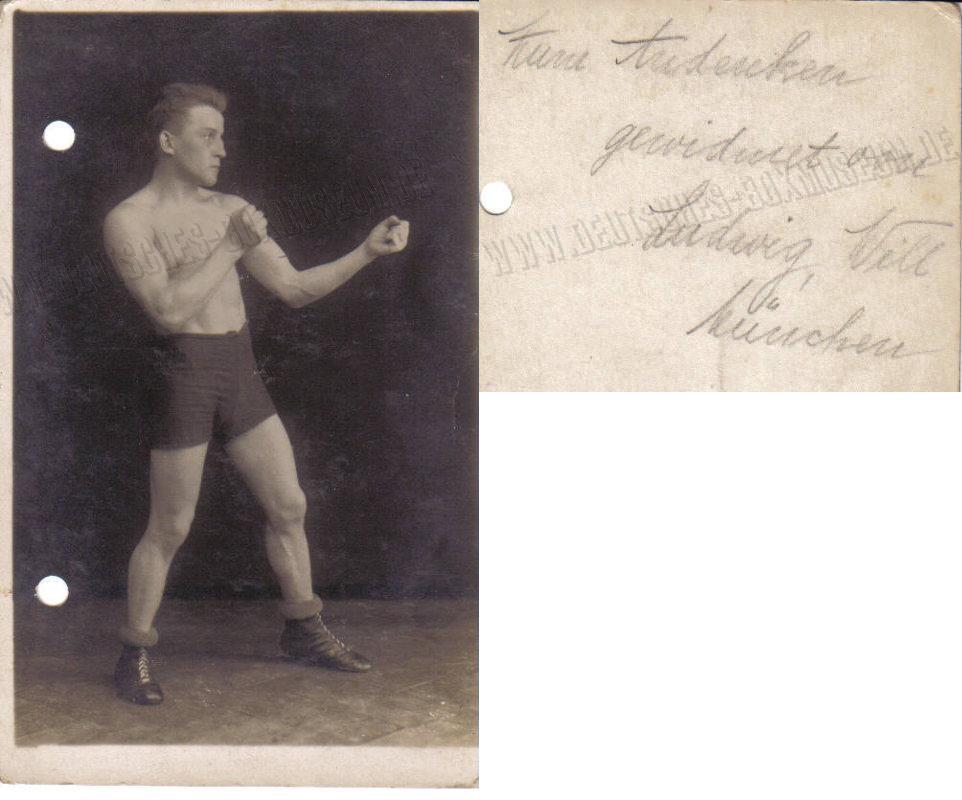 WWW.DEUTSCHES-BOXMUSEUM.DE
Zum Andenken
gewidmet von
Ludwig Vill
München
WWW.DEUTSCHES-BOXMUSEUM.DE